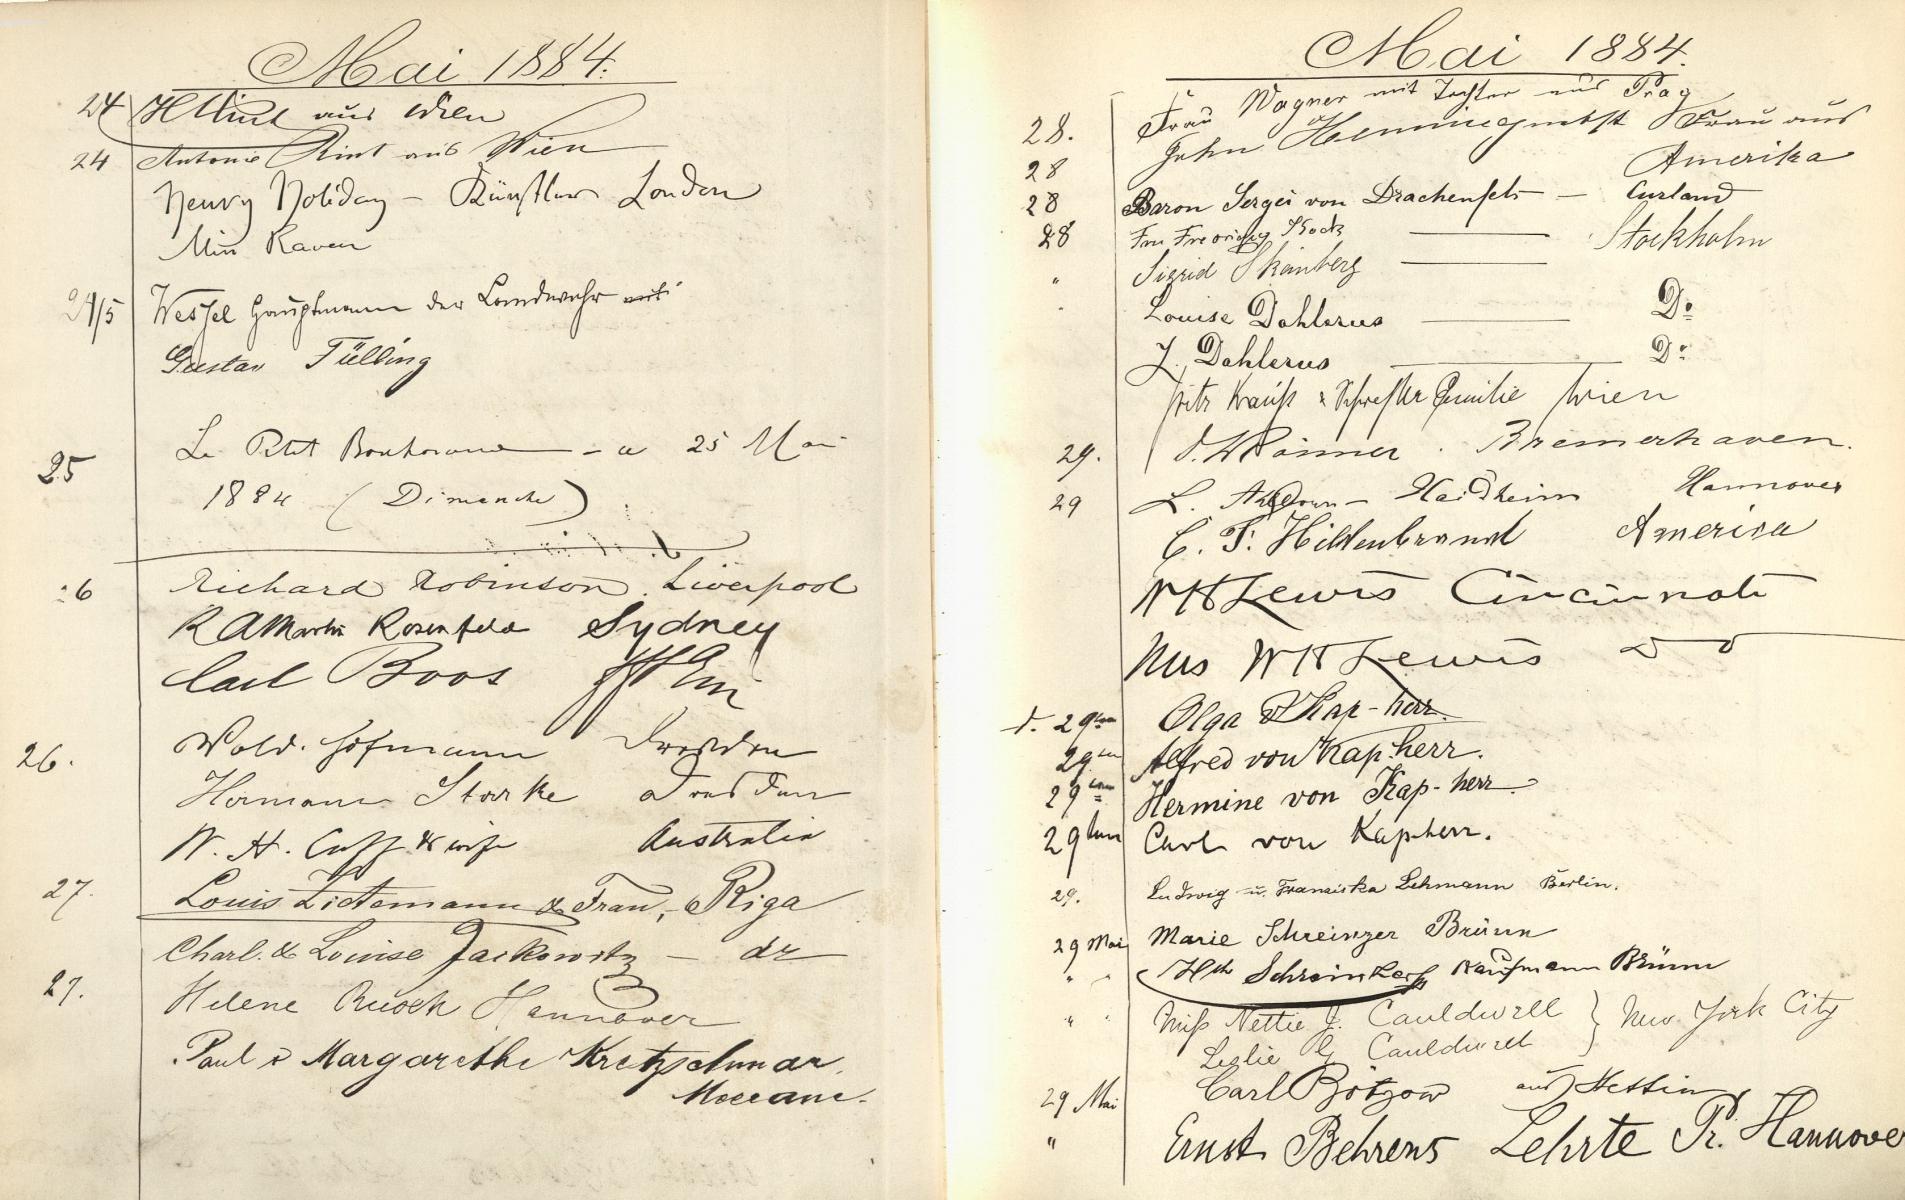 Mai 1884.
24 aus Wien
24 Antonie Rint aus Wien
Henry Holiday – Künstler London
Miss Raven
24/5 Wessel Hauptmann der Landwehr mit
Gustav Fülling
25 Le Petit Bonhomme – a 25 Mai
1884 (Dimanche)
26 Richard Robinson. Liverpool
R A Martin Rosenfeld Sydney
Carl Boos
26. Wold. Hofmann Dresden
Hermann Starke Dresden
W. H. Cuff & wife Australia
27. Louis & Frau, – Riga
Charl. & Louise Jackowitz – do
27. Helene Rusch Hannover
Paul & Margarethe Kretzschmar.
Meerane.
Mai 1884.
28. Frau Wagner mit Tochter aus Prag
28 John Frau aus
Amerika
28 Baron Sergei von Drachenfels – Curland
28 Stockholm
" Sigrid Skanberg
Louise Dahlerus Do
J. Dahlerus Do
Fritz Krauß & Schwester Emilie Wien
29. Bremerhaven.
29 L. Haidheim Hannover
C. F. Hildenbrand America
W H Lewis Cincinnati
Mrs W H Lewis do
d. 29ten Olga v Kap-herr.
29ten Alfred von Kap-herr.
29ten Hermine von Kap-herr.
29ten Carl von Kap-herr.
29. Ludwig u. Franziska Lehmann Berlin.
29 Mai Marie Schreinzer Brünn
" " Hch Schreinzer Kaufmann Brünn
" " Miss Nettie J. Cauldwell } New York City
Leslie G Cauldwell
29 Mai Carl Bötzow aus Stettin
" Ernst Behrens Lehrte Pr. Hannover